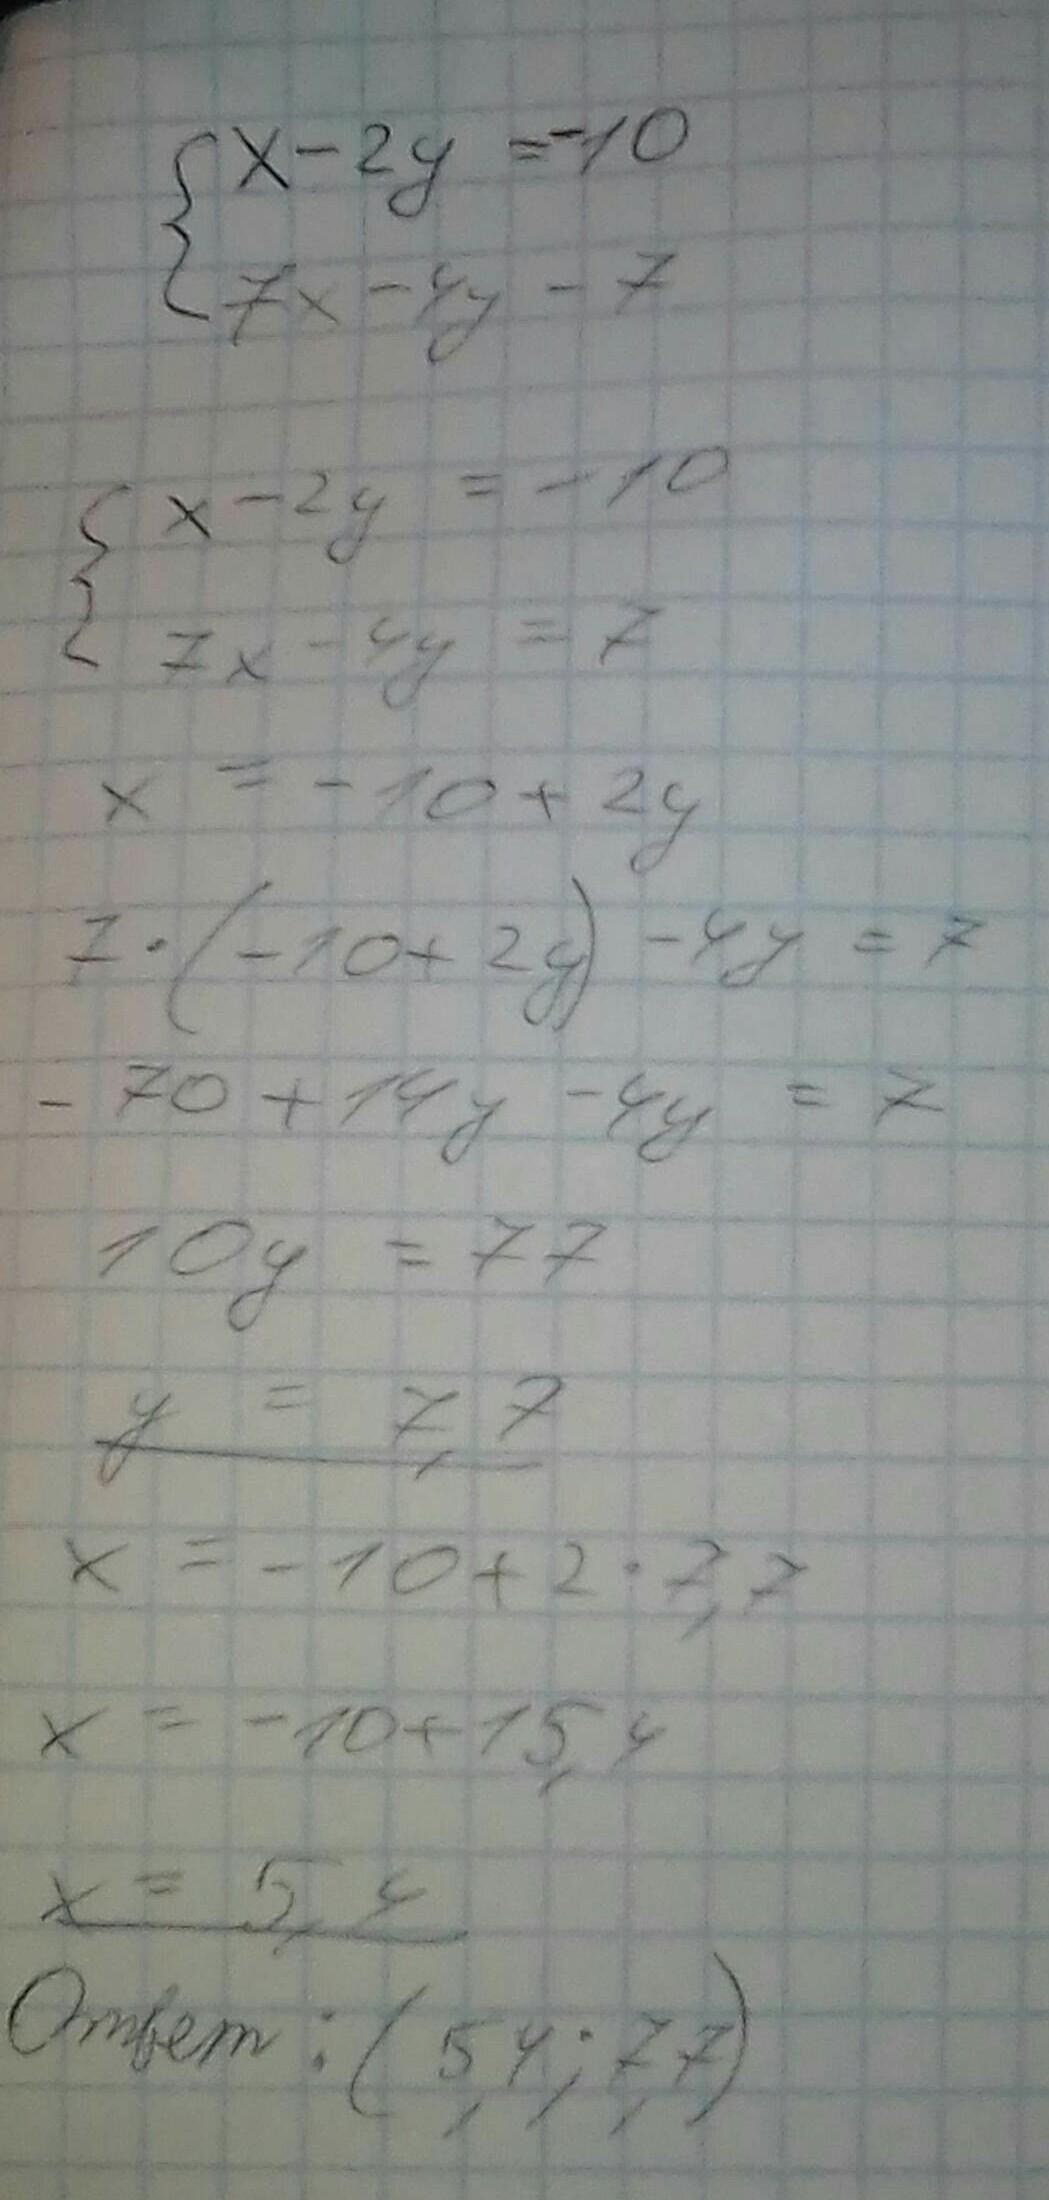 { x - 2y = -10
7x - 4y - 7
{ x - 2y = -10
7x - 4y = 7
x = -10 + 2y
7 · (-10 + 2y) - 4y = 7
-70 + 14y - 4y = 7
10y = 77
y = 7,7
x = -10 + 2 · 7,7
x = -10 + 15,4
x = 5,4
Ответ : (5,4; 7,7)